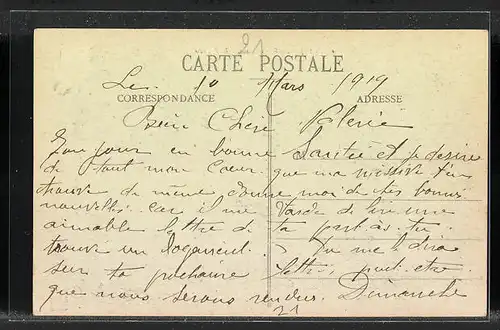 21
CARTE POSTALE
Le 10 Mars 1919
CORRESPONDANCE ADRESSE
Bien Chère Valérie
jour en bonne Santé et je désire
de tout mon Coeur que ma missive t'en
trouve de même donne moi de tes bonnes
nouvelles car il me tarde de lire une
aimable lettre de ta part as-tu
trouvé un logement. Tu me le diras
sur ta prochaine lettre, peut-être
que nous serons rendus Dimanche
21